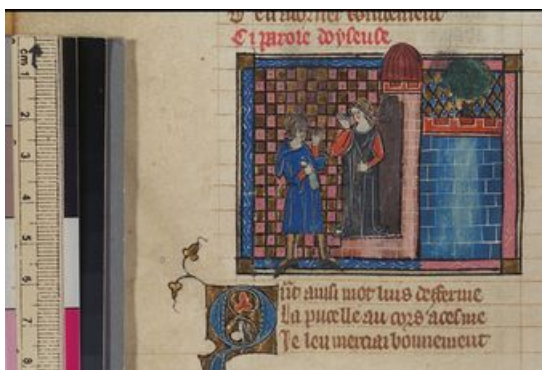 bonnement
Ci parole oyseuse
cm 1
2
3
4
5
6
7
8
ainsi mot luis defferme
La pucelle au cors acesme
Je len merciai bonnement